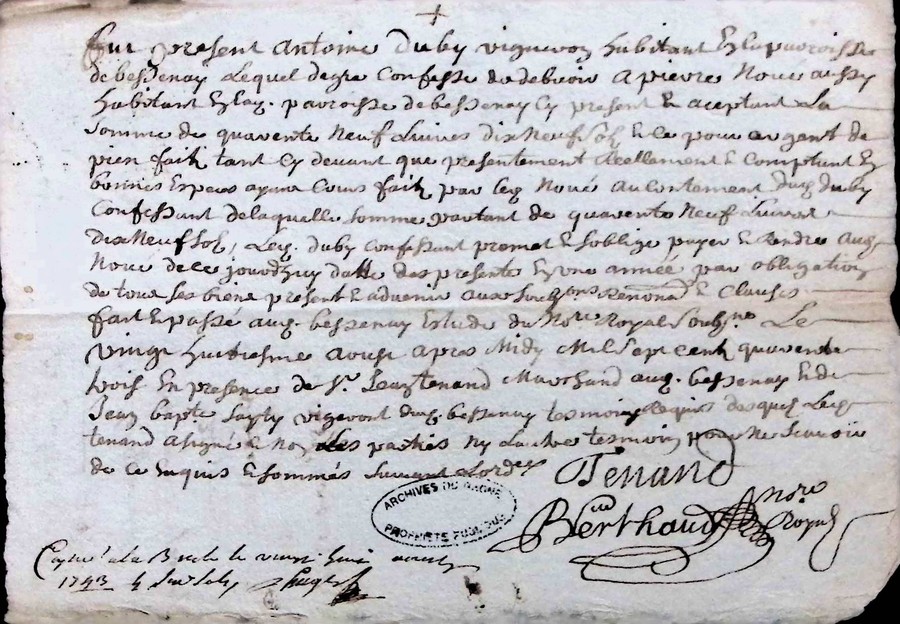 +
Fut present Antoine Duby vigneron habitant En la parroisse
de bessenay Lequel degre Confesse de debvoir a pierre Noué aussy
habitant En lad. parroisse de bessenay Cy present & aceptant La
somme de quarente Neuf Livres dix Neuf sols & ce pour argent de
prest fait tant Cy devant que presentement reellement & Comptant En
bonnes Especes ayant Cours fait par led Noué au Contentement dud duby
Confessant de laquelle somme partant de quarente Neuf Livres
dix Neuf sols, Led. duby Confessant promet & soblige payer & Rendre aud
Noué de ce jourdhuy datte des presente En une année par obligation
de tous ses biens present & advenir aux soub.ons Renond & Clauses
fait & passé aud. bessenay Estude du No.re Royal soubs.ne Le
vingt huitiesme aoust apres Midy Mil sept cent quarente
trois En presence de S.r Tenand Marchand aud. bessenay & de
Jean bapt.e vigneront dud. bessenay tesmoins Requis desquels Led
tenand a signé & Non Les parties Ny Lautre tesmoin pour ne scavoir
de ce Enquis & sommés suivant Lord.ce
Tenand
Berthaud No.re Royal
ARCHIVES DU RHONE
PROPRIETE PUBLIQUE
Con.é a la Bresle le vingt huit aoust
1743